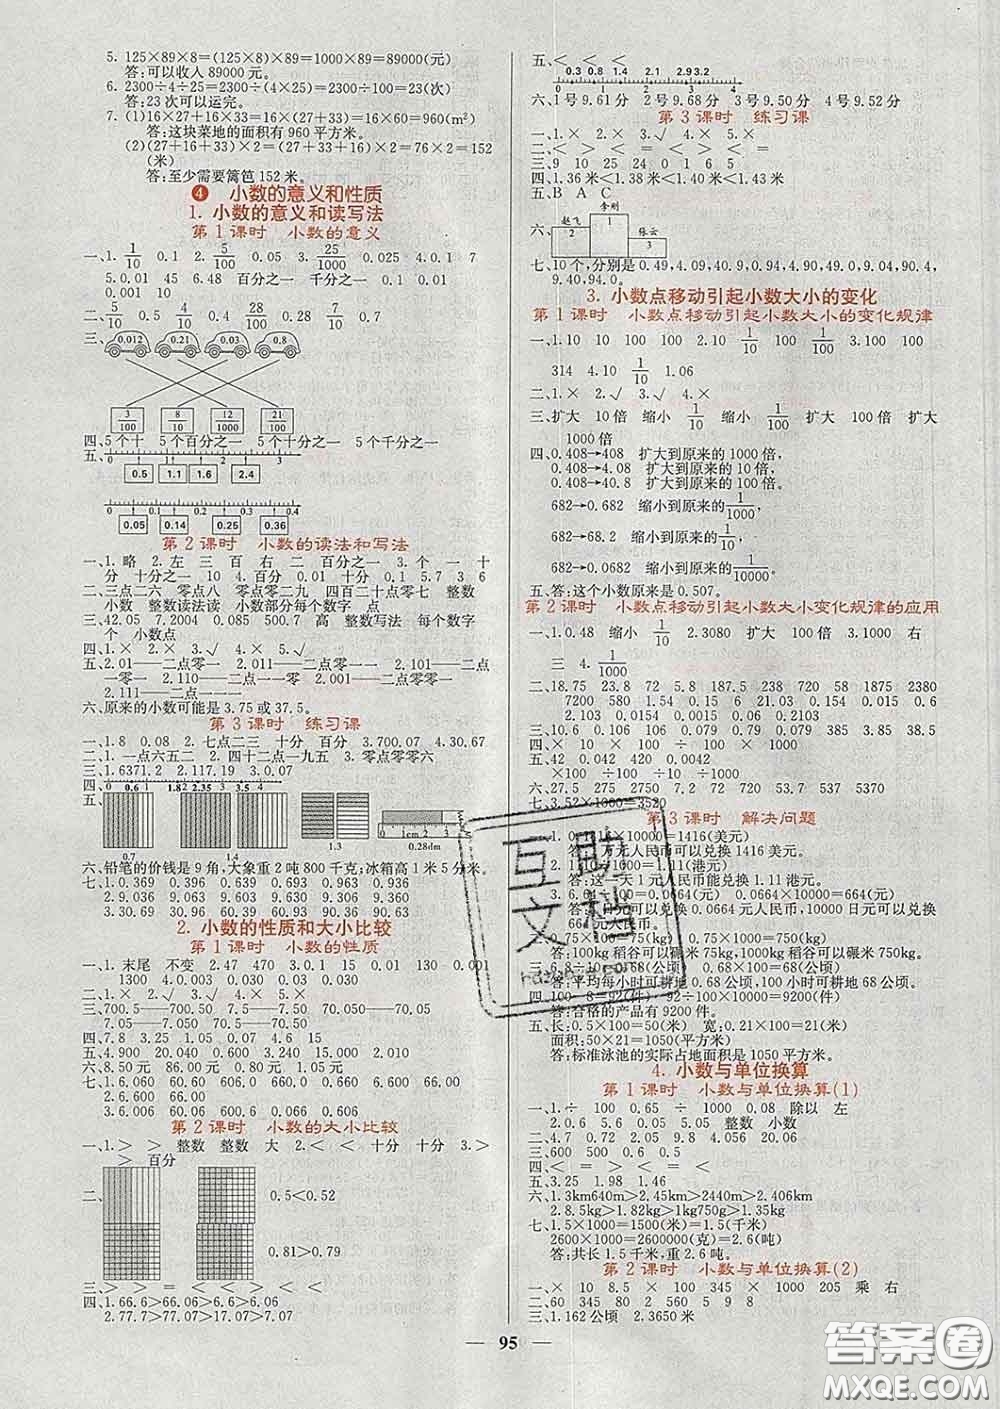 5. 125×89×8=(125×8)×89=1000×89=89000(元)
答:可以收入 89000 元。
6. 2300÷4÷25=2300÷(4×25)=2300÷100=23(次)
答:23 次可以运完。
7. (1)16×27+16×33=16×(27+33)=16×60=960(m²)
答:这块菜地的面积有 960 平方米。
(2)(27+33+16)×2=(27+33+16)×2=76×2=152
(米)
答:至少需要篱笆 152 米。
4 小数的意义和性质
1. 小数的意义和读写法
第 1 课时 小数的意义
一、1. 1/10 0.1 2. 5/100 0.05 3. 25/1000 0.025 4.0.1 7
5.0.01 45 6.48 百分之一 千分之一 0.1 0.01
0.001 10
二、5/10 0.5 4/100 0.04 28/100 0.28 7/10 0.7
三、0.012 0.21 0.03 0.8
3/100 8/10 12/1000 21/100
四、5 个十 5 个百分之一 5 个十分之一 5 个千分之一
五、0 1 2 3
0.5 1.1 1.6 2.4
0 0.1 0.2 0.3 0.4
0.05 0.14 0.25 0.36
第 2 课时 小数的读法和写法
一、1. 略 2. 左 三 百 右 二 百分之一 3. 个 一 十
分 十分之一 10 4. 百分 0.01 十分 0.1 5.7 3 6
二、三点二六 零点零二九 四百二十点零七 整数
小数 整数读法读 小数部分每个数字 点
三、42.05 7.2004 0.085 500.7 高 整数写法 每个数字
个 小数点
四、1.× 2.× 3.√ 4.× 5.√
五、2.01——二点零一 2.011——二点零一一 2.101——二点
一零一 2.110——二点一一零 2.001——二点零零一
2.111——二点一一一
六、原来的小数可能是 3.75 或 37.5。
第 3 课时 练习课
一、1.8 0.08 2. 七点二三 十分 百分 3.700.07 4.30.67
二、1. 一点六五二 2. 四十二点一九五 3. 零点零零六
三、1.6371.2 2.117.19 3.0.07
四、0 0.6 1 1.8 2 2.35 3 3.5 4
五、0.7 1.4 1.3 0 1cm 2 3 0.28dm
六、铅笔的价钱是 9 角,大象重 2 吨 800 千克;冰箱高 1 米 5 分米。
七、1.0.369 0.396 0.639 0.693 0.936 0.963
2.0.369 0.396 0.639 0.693 0.936 0.963
3.30.69 30.96 60.39 60.93 90.36 90.63
2. 小数的性质和大小比较
第 1 课时 小数的性质
一、1. 末尾 不变 2.47 470 3.0.1 130 0.01 130 0.001
1300 4.0.003 0.03 0.03 0.003
二、1.× 2.× 3.√ 4.× 5.√
三、700.5——700.50 7.5——7.50 70.050——70.05
7.05——7.050 70.50——70.5
四、7.8 3.25 1.05 0.07 4.6 5.15
五、4.900 20.040 0.600 3.500 12.000 2.010
六、8.50 元 86.00 元 0.80 元 1.05 元
七、1.0.006 0.060 0.600 6.000
2.6.600 66.00
3.6.006 6.060 6.600 60.06 60.60 66.00
第 2 课时 小数的大小比较
一、1.> > 整数 整数 大 2.< < 十分 十分 3.>
> 百分
二、0.5<0.52
0.81>0.79
三、> > = < < > < =
四、1.66.6>66.06>6.66>6.6>6.06
2.77.7>77.07>7.77>7.7>7.07
五、< < < <
0.3 0.8 1.4 2.1 2.9 3.2
0 1 2 3 4
六、1 号 9.61 分 2 号 9.68 分 3 号 9.50 分 4 号 9.52 分
第 3 课时 练习课
一、1.× 2.× 3.√ 4.×
二、= > < > = < < >
三、9 10 25 24 0 1 6 5
四、1.36 米<1.38 米<1.40 米<1.42 米<1.43 米
五、B A C
六、赵飞 2 李刚 1 张云 3
七、10 个,分别是 0.49,4.09,40.9,0.94,4.90,49.0,9.04,90.4,
9.40,94.0。
3. 小数点移动引起小数大小的变化
第 1 课时 小数点移动引起小数大小的变化规律
一、1.10 10 100 100 2.10 1/10 100 1/100 3.100 100
314 4.10 1/10 1.06
二、1.× 2.√ 3.√ 4.×
三、扩大 10 倍 缩小 1/10 缩小 1/100 扩大 100 倍 扩大
1000 倍
四、0.408→408 扩大到原来的 1000 倍,
0.408→4.08 扩大到原来的 10 倍,
0.408→40.8 扩大到原来的 100 倍。
682→0.682 缩小到原来的 1/1000
682→68.2 缩小到原来的 1/10
682→0.0682 缩小到原来的 1/10000
五、答:这个小数原来是 0.507。
第 2 课时 小数点移动引起小数大小变化规律的应用
一、1.0.48 缩小 1/10 2.3080 扩大 100 倍 3.1000 右
三 4. 1/1000
二、18.75 23.8 72 5.8 187.5 238 720 58 1875 2380
7200 580 1.54 0.15 6 21.03 0.154 0.015 0.6
2.103 0.0154 0.0015 0.06 0.2103
三、10.6 0.106 106 0.079 0.79 0.079 385 3.85 38.5
四、× 10 × 100 ÷ 100 × 1000
五、42 0.042 420 0.0042
×100 ÷100 ×10 ÷1000
六、27.5 2750 275 52 7.52 752 53.7 537 5370
七、3.52×1000=3520
第 3 课时 解决问题
一、1.0.1416×10000=1416(美元)
答:1 万元人民币可以兑换 1416 美元。
2. 1110÷1000=1.11(港元)
答:这一天 1 元人民币能兑换 1.11 港元。
答:日元可以兑换 0.0664 元人民币,10000 日元可以兑换
664 元人民币。
答:100kg 稻谷可以碾米 75kg,1000kg 稻谷可以碾米 750kg。
三、6.8÷10=0.68(公顷) 0.68×100=68(公顷)
答:平均每小时可耕地 0.68 公顷,100 小时可耕地 68 公顷。
四、100-8=92(件) 92÷100×10000=9200(件)
答:合格的产品有 9200 件。
五、长:0.5×100=50(米) 宽:0.21×100=21(米)
面积:50×21=1050(平方米)
答:标准泳池的实际占地面积是 1050 平方米。
4. 小数与单位换算
第 1 课时 小数与单位换算(1)
一、1.÷ 100 0.65 ÷ 1000 0.08 除以 左
2.0.56 5.6 0.05 5.05 整数 小数
二、4.7 0.72 2.05 4.008 2.9 2.09
三、600 500 0.5 0.6
四、< > < = < <
五、3.25 1.98 1.46
六、1.3km640m>2.46km>2440m>2.406km
2.8.5kg>1.82kg>1kg750g>1.35kg
七、1.5×1000=1500(米)=1.5(千米)
2600×1000=2600000(克)=2.6(吨)
答:共长 1.5 千米,重 2.6 吨。
第 2 课时 小数与单位换算(2)
一、× 10 8.5 × 100 345 × 1000 205 乘 右
二、60 345 80 2 560 5 9 8
三、1.162 公顷 2.3650 米
95
互助文档
答案圈
MXQE.COM